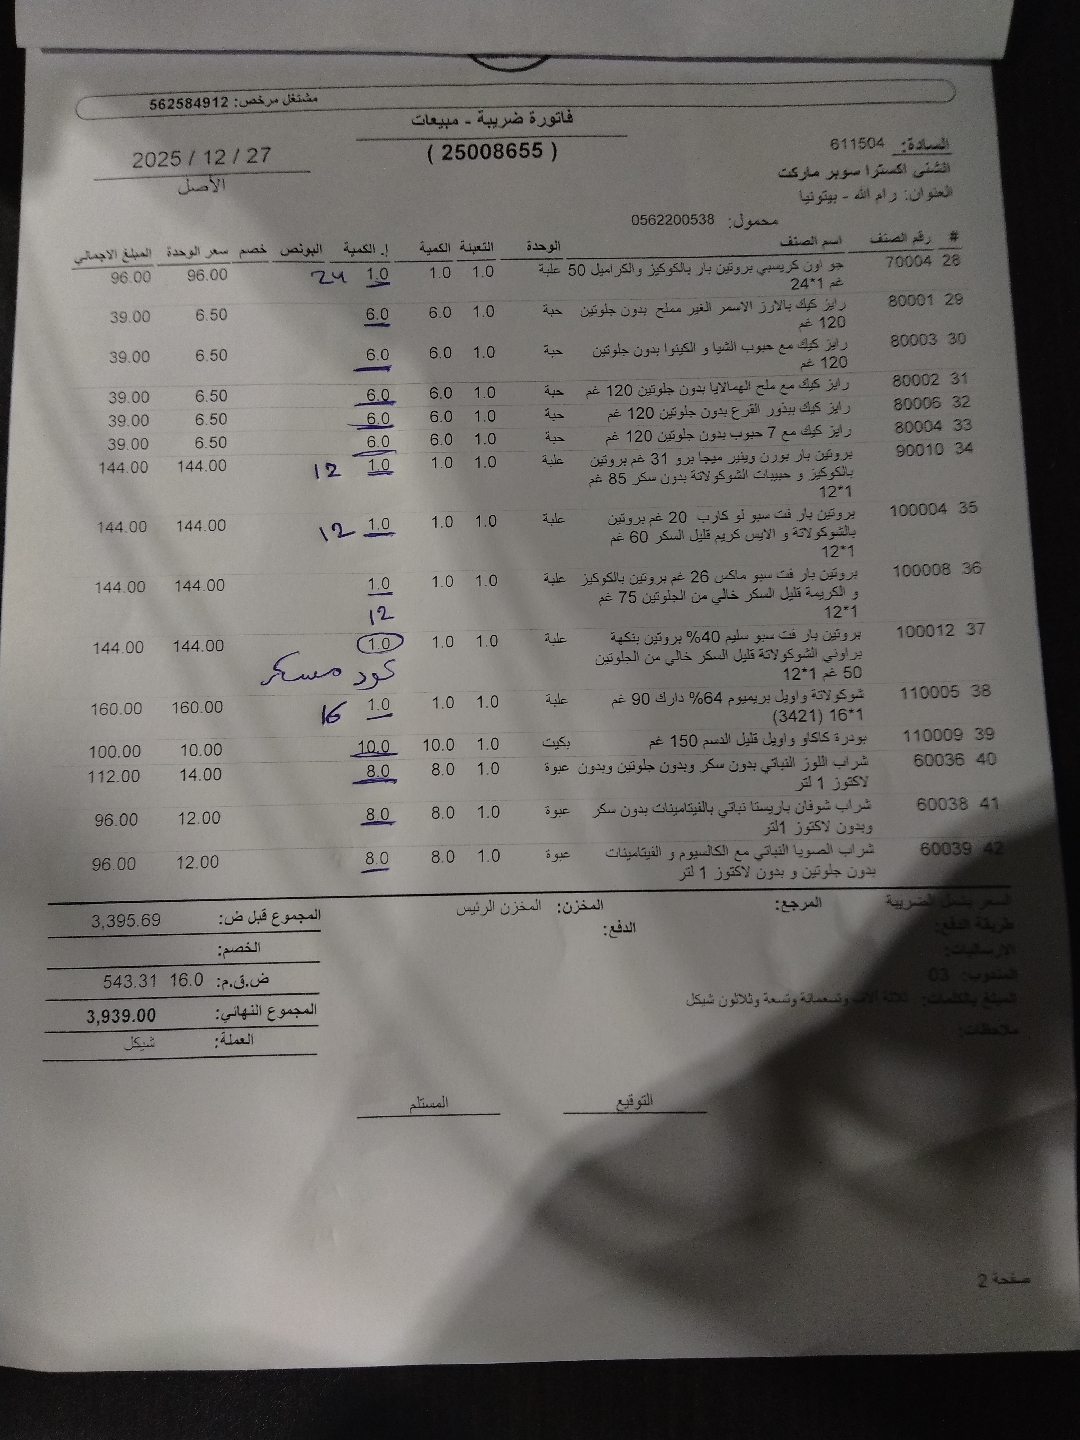 مشتغل مرخص: 562584912
فاتورة ضريبة - مبيعات
( 25008655 )
2025 / 12 / 27
الأصل
السادة: 611504
الشني اكسترا سوبر ماركت
العنوان: رام الله - بيتونيا
محمول: 0562200538
# رقم الصنف اسم الصنف الوحدة التعبئة الكمية إ. الكمية البونص خصم سعر الوحدة المبلغ الاجمالي
28 70004 جو اون كريسبي بروتين بار بالكوكيز والكراميل 50 علبة 1.0 1.0 1.0 24 96.00 96.00
غم 1*24
29 80001 رايز كيك بالارز الاسمر الغير مملح بدون جلوتين حبة 1.0 6.0 6.0 6.50 39.00
120 غم
30 80003 رايز كيك مع حبوب الشيا و الكينوا بدون جلوتين حبة 1.0 6.0 6.0 6.50 39.00
120 غم
31 80002 رايز كيك مع ملح الهمالايا بدون جلوتين 120 غم حبة 1.0 6.0 6.0 6.50 39.00
32 80006 رايز كيك ببذور القرع بدون جلوتين 120 غم حبة 1.0 6.0 6.0 6.50 39.00
33 80004 رايز كيك مع 7 حبوب بدون جلوتين 120 غم حبة 1.0 6.0 6.0 6.50 39.00
34 90010 بروتين بار بورن وينير ميجا برو 31 غم بروتين علبة 1.0 1.0 1.0 12 144.00 144.00
بالكوكيز و حبيبات الشوكولاتة بدون سكر 85 غم
1*12
35 100004 بروتين بار فت سبو لو كارب 20 غم بروتين علبة 1.0 1.0 1.0 12 144.00 144.00
بالشوكولاتة و الايس كريم قليل السكر 60 غم
1*12
36 100008 بروتين بار فت سبو ماكس 26 غم بروتين بالكوكيز علبة 1.0 1.0 1.0 144.00 144.00
و الكريمة قليل السكر خالي من الجلوتين 75 غم
1*12 12
37 100012 بروتين بار فت سبو سليم 40% بروتين بنكهة علبة 1.0 1.0 1.0 144.00 144.00
براوني الشوكولاتة قليل السكر خالي من الجلوتين
50 غم 1*12 كود مسكر
38 110005 شوكولاتة واويل بريميوم 64% دارك 90 غم علبة 1.0 1.0 1.0 16 160.00 160.00
1*16 (3421)
39 110009 بودرة كاكاو واويل قليل الدسم 150 غم بكيت 1.0 10.0 10.0 10.00 100.00
40 60036 شراب اللوز النباتي بدون سكر وبدون جلوتين وبدون عبوة 1.0 8.0 8.0 14.00 112.00
لاكتوز 1 لتر
41 60038 شراب شوفان باريستا نباتي بالفيتامينات بدون سكر عبوة 1.0 8.0 8.0 12.00 96.00
وبدون لاكتوز 1لتر
42 60039 شراب الصويا النباتي مع الكالسيوم و الفيتامينات عبوة 1.0 8.0 8.0 12.00 96.00
بدون جلوتين و بدون لاكتوز 1 لتر
السعر يشمل الضريبة المرجع: المخزن: المخزن الرئيس
طريقة الدفع: الدفع:
الارساليات:
المندوب: 03
المبلغ بالكلمات: ثلاثة آلاف وتسعمائة وتسعة وثلاثون شيكل
ملاحظات:
المجموع قبل ض: 3,395.69
الخصم:
ض.ق.م: 16.0 543.31
المجموع النهائي: 3,939.00
العملة: شيكل
التوقيع المستلم
صفحة 2